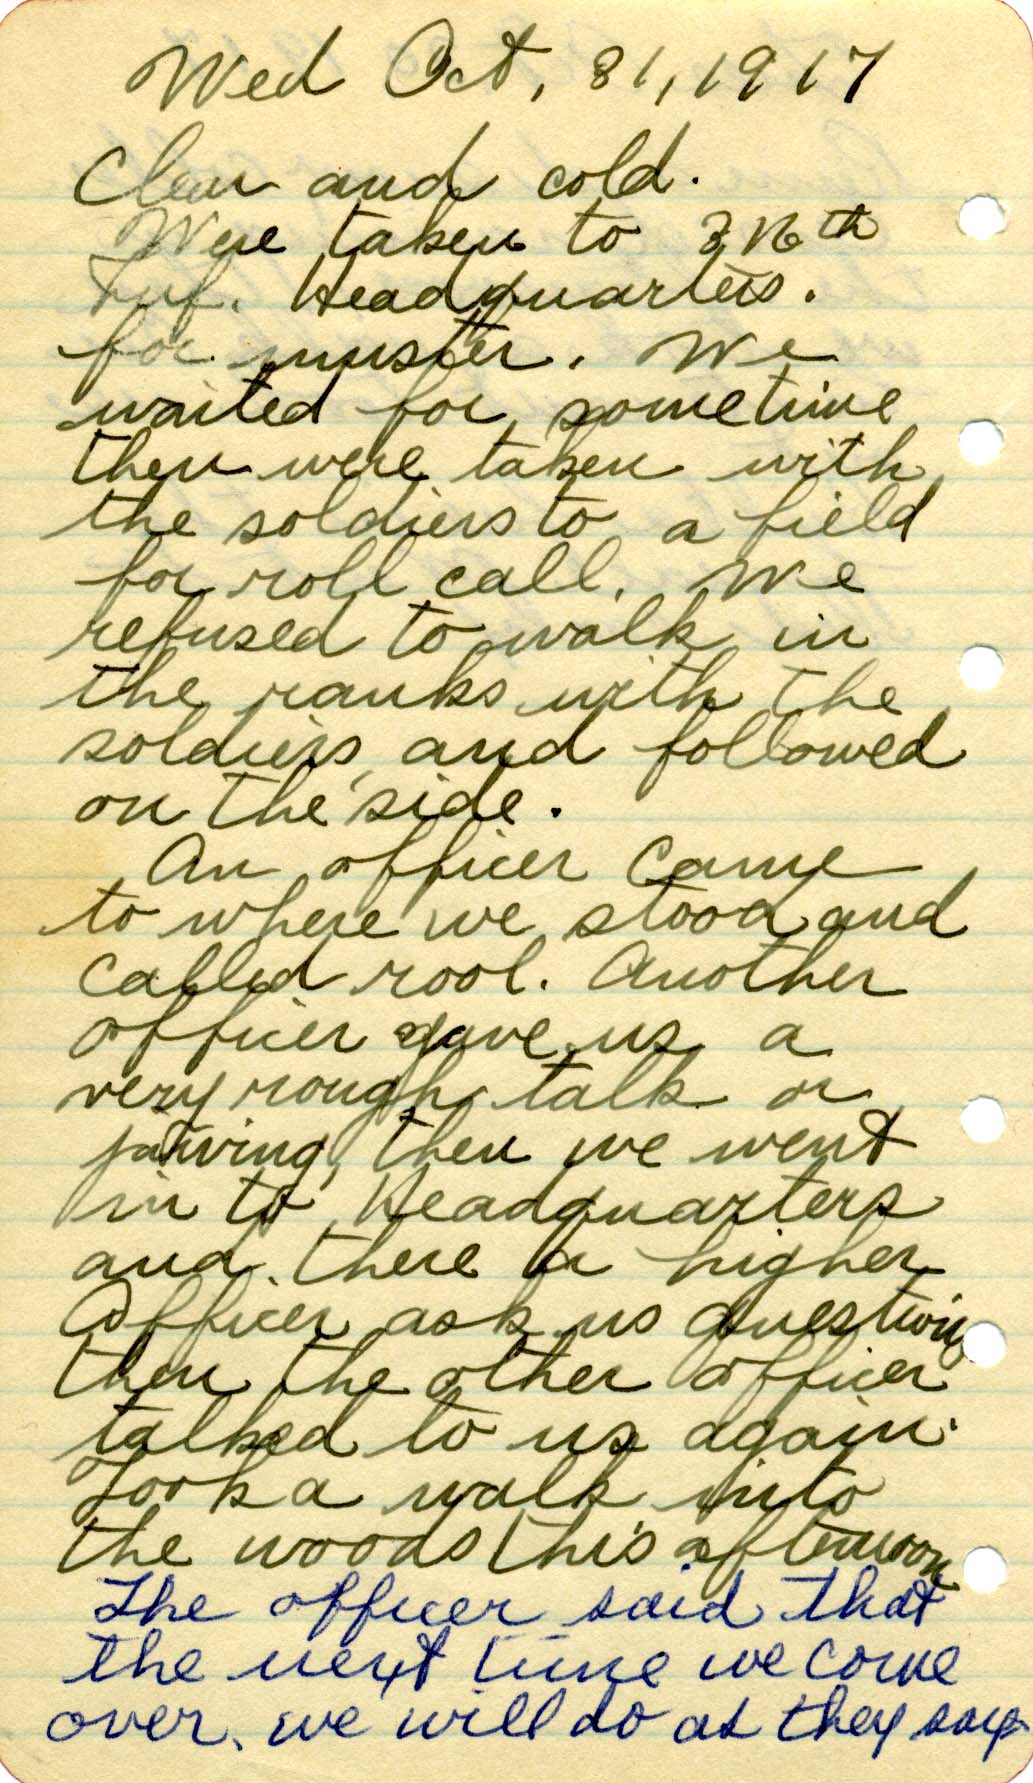 Wed Oct, 31, 1917
Clear and cold.
Were taken to 316th
Inf. Headquarters.
for muster. We
waited for sometime
then were taken with
the soldiers to a field
for roll call. We
refused to walk in
the ranks with the
soldiers, and followed
on the side.
An officer came
to where we stood and
called rool. Another
officer gave us a
very rough talk or
jawing, then we went
in to Headquarters
and there a higher
Officer ask us question
then the other officer
talked to us again.
Took a walk into
the woods this afternoon
The officer said that
the next time we come
over, we will do as they say